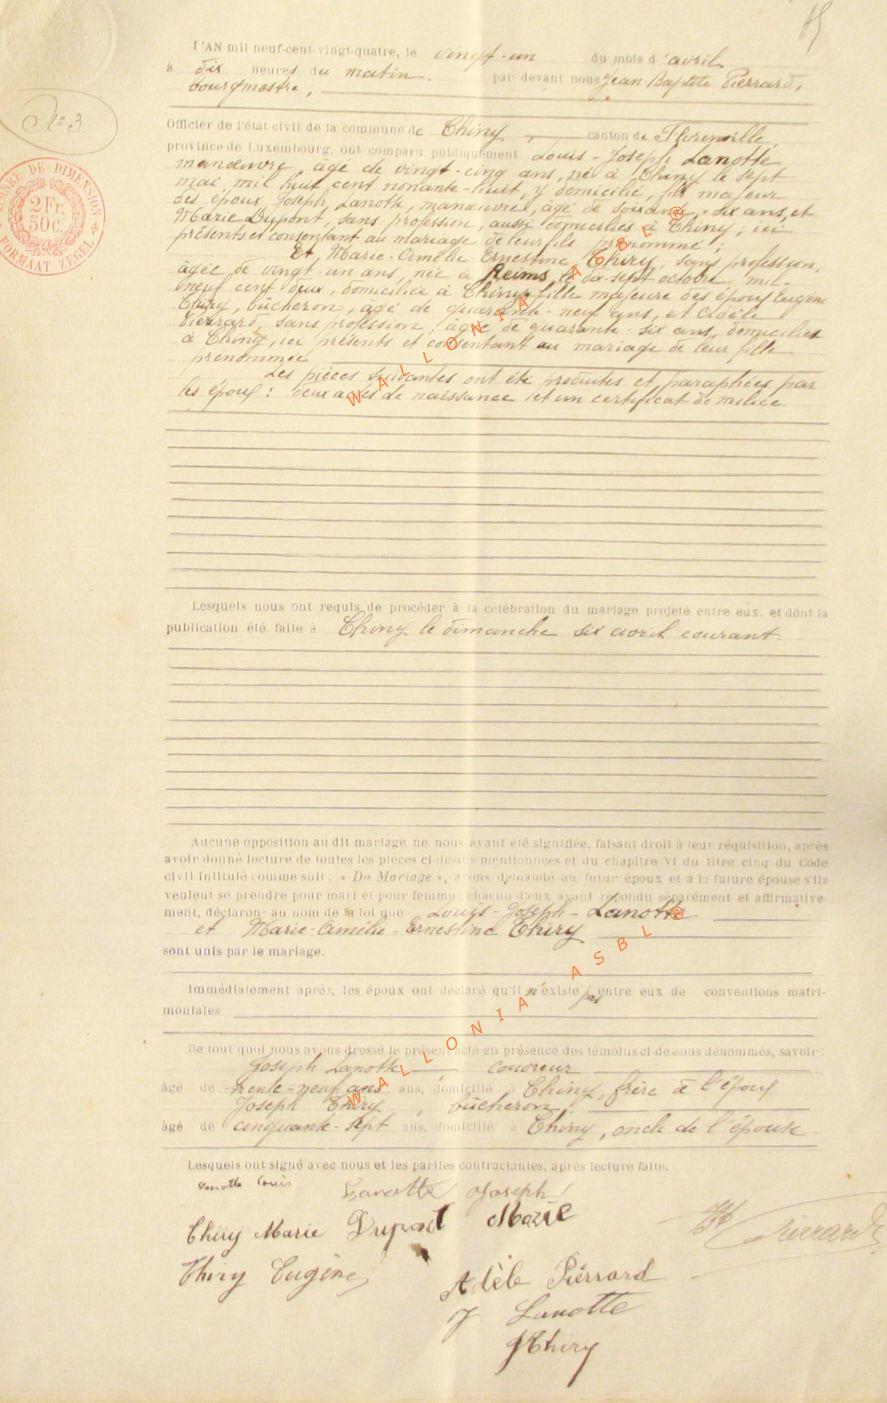 L'AN mil neuf-cent-vingt-quatre, le vingt-un du mois d'avril
à dix heures du matin. par devant nous Jean-Baptiste Pierrard,
bourgmestre,
N° 3
Officier de l'état civil de la commune de Chiny canton de Florenville,
province de Luxembourg, ont comparu publiquement Louis-Joseph Lanotte,
manœuvre, âgé de vingt-cinq ans, né à Chiny le sept
mai mil huit cent nonante-huit, y domicilié, fils majeur
des époux Joseph Lanotte, manœuvre, âgé de soixante-six ans, et
Marie Dupont, sans profession, aussi domiciliés à Chiny, ici
présents et consentant au mariage de leur fils prénommé;
Et, Marie-Amélie-Ernestine Thiry, sans profession,
âgée de vingt-un ans, née à Reims, le dix-sept octobre mil-
neuf cent deux, domiciliée à Chiny, fille majeure des époux Eugène
Thiry, bûcheron, âgé de quarante-neuf ans, et
Pierrard, sans profession, âgée de quarante-six ans, domiciliés
à Chiny, ici présents et consentant au mariage de leur fille
prénommée
Les pièces suivantes ont été produites et paraphées par
les époux: deux actes de naissance et un certificat de milice.
2 Fr.
50 c.
FORMAAT ZEGEL
Lesquels nous ont requis de procéder à la célébration du mariage projeté entre eux, et dont la
publication été faite à Chiny le dimanche six avril courant.
Aucune opposition au dit mariage ne nous ayant été signifiée, faisant droit à leur réquisition, après
avoir donné lecture de toutes les pièces ci-dessus mentionnées et du chapitre VI du titre cinq du Code
civil intitulé comme suit: « Du Mariage », avons demandé au futur époux et à la future épouse s'ils
veulent se prendre pour mari et pour femme; chacun d'eux ayant répondu séparément et affirmative-
ment, déclarons au nom de la loi que Louis-Joseph-Lanotte
et Marie-Amélie-Ernestine Thiry
sont unis par le mariage.
Immédiatement après, les époux ont déclaré qu'il n'existe pas entre eux de conventions matri-
moniales
De tout quoi nous avons dressé le présent acte en présence des témoins ci-dessous dénommés, savoir:
Joseph Lanotte
âgé de trente-neuf ans ans, domicilié à Chiny, frère à l'époux
Joseph Thiry, bûcheron,
âgé de cinquante-sept ans, domicilié à Chiny, oncle de l'épouse
Lesquels ont signé avec nous et les parties contractantes, après lecture faite.
Lanotte Louis Lanotte Joseph
Thiry Marie Dupont Marie Pierrard
Thiry Eugène
Adèle Piérrard
J Lanotte
J Thiry
WALLONIA ASBL ®
WALLONIA ASBL ®